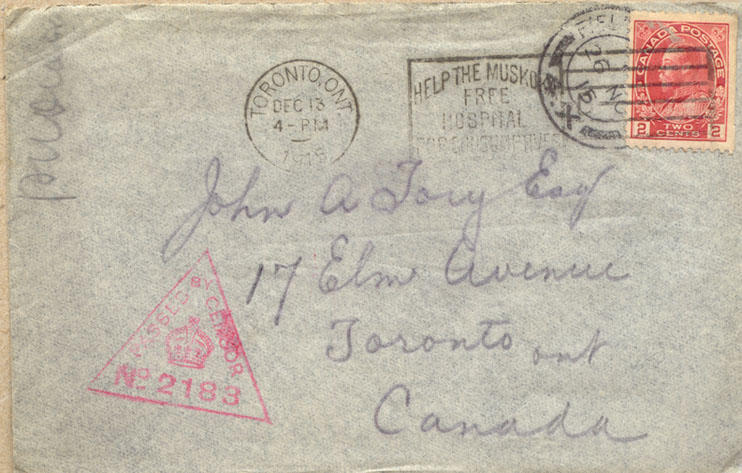 TORONTO, ONT.
DEC 13
4-PM
1915
HELP THE MUSKO
FREE
HOSPITAL
CONSUMPTIVES
FIEL
26 NO
15
CANADA POSTAGE
2 TWO CENTS 2
John A Tory Esq
17 Elm Avenue
Toronto ont
Canada
PASSED BY CENSOR
No 2183